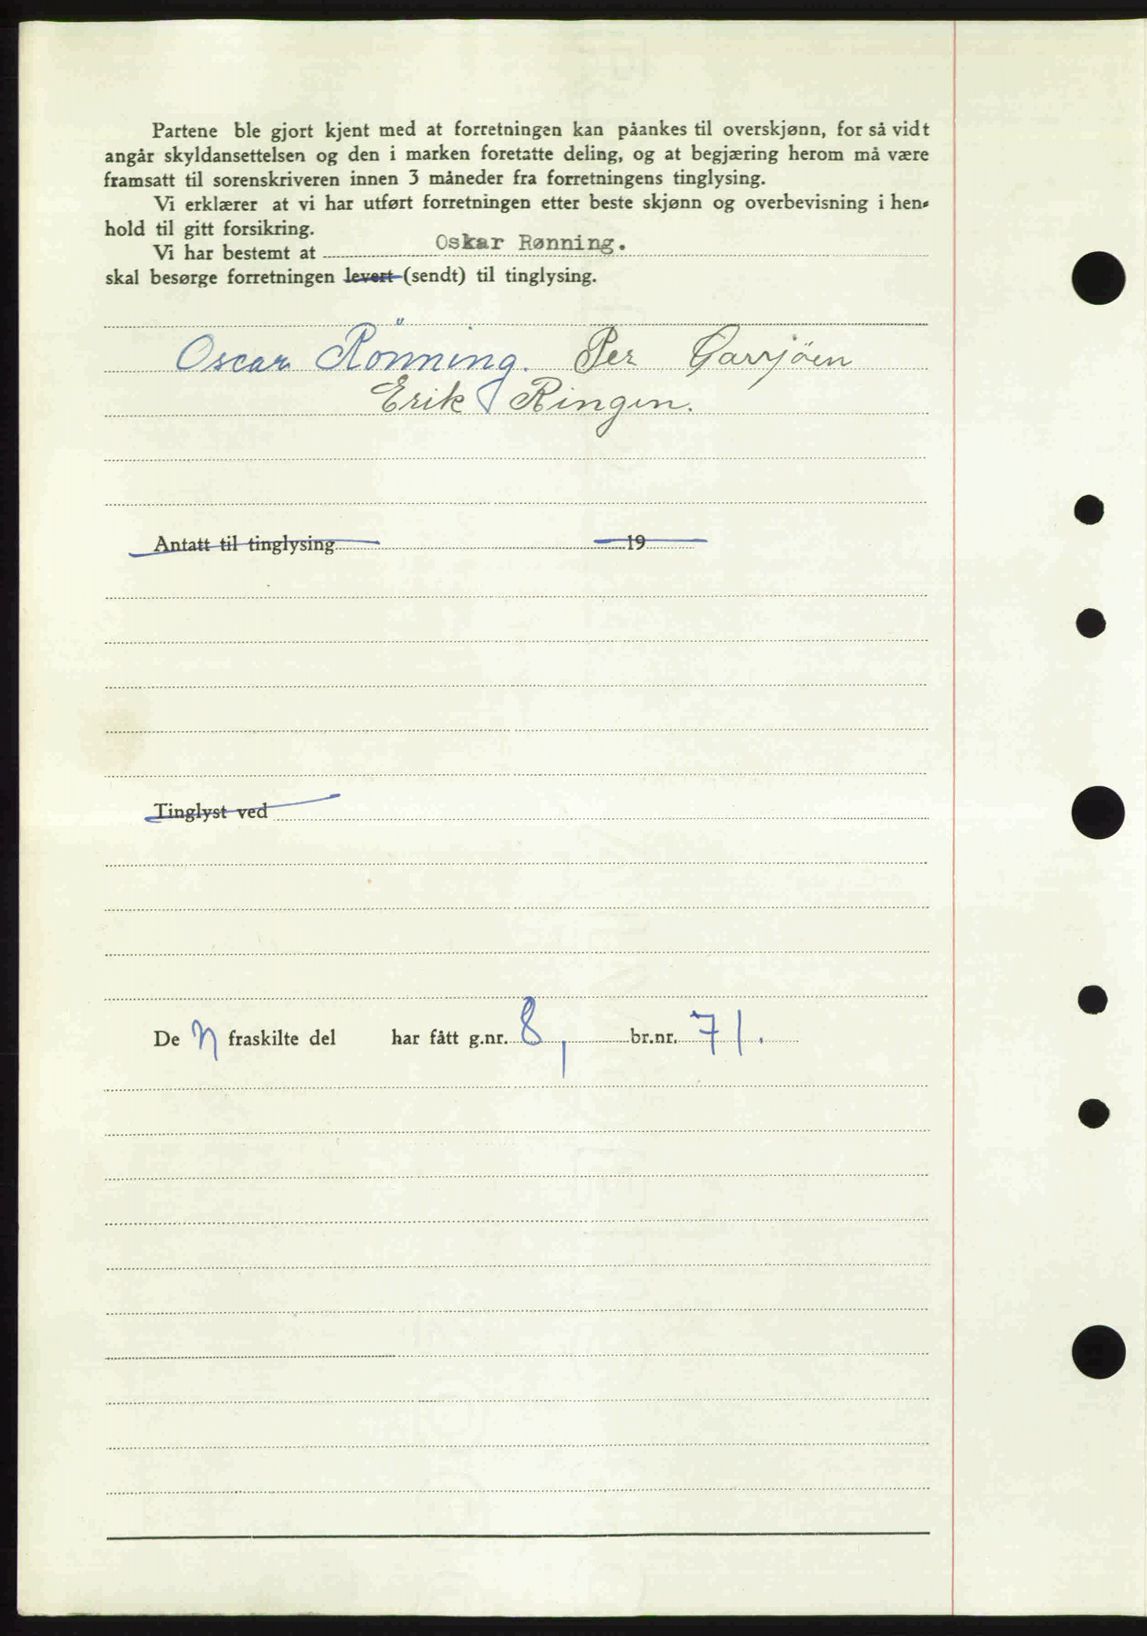 Partene ble gjort kjent med at forretningen kan påankes til overskjønn, for så vidt
angår skyldansettelsen og den i marken foretatte deling, og at begjæring herom må være
framsatt til sorenskriveren innen 3 måneder fra forretningens tinglysing.
Vi erklærer at vi har utført forretningen etter beste skjønn og overbevisning i hen-
hold til gitt forsikring.
Vi har bestemt at Oskar Rønning.
skal besørge forretningen levert (sendt) til tinglysing.
Oscar Rönning. Per Garsjöen
Erik Ringen.
Antatt til tinglysing 19
Tinglyst ved
De n fraskilte del har fått g.nr. 8, br.nr. 71.